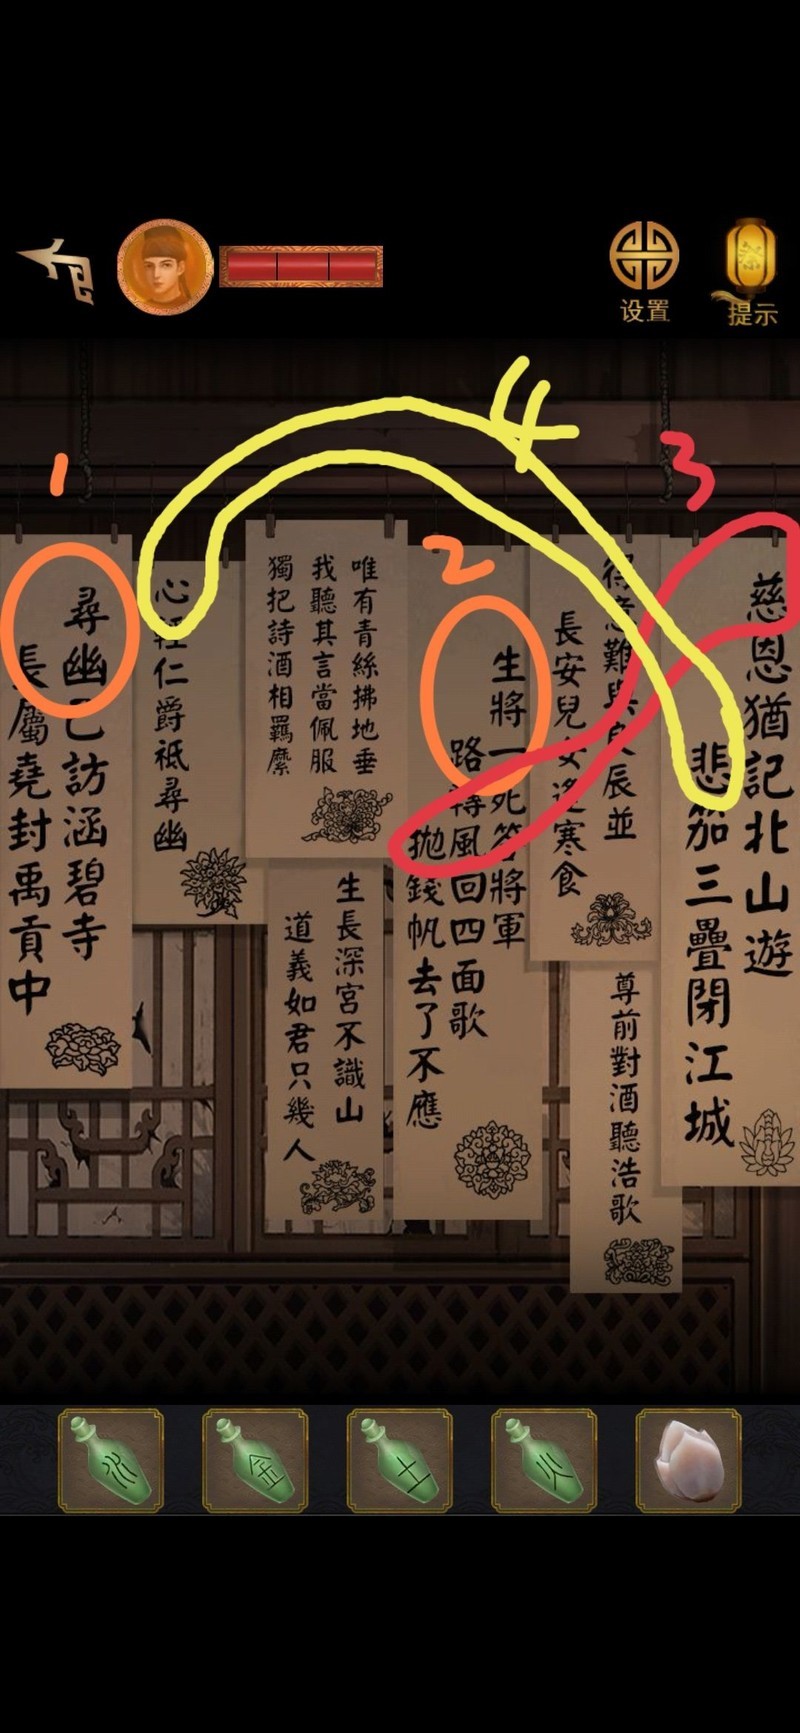 设置
提示
4
3
2
1
慈恩猶記北山遊
悲笳三疊閉江城
得意難與良辰並
長安兒女逐寒食
尊前對酒聽浩歌
生將一死答將軍
路轉風回四面歌
拋錢帆去了不應
唯有青絲拂地垂
我聽其言當佩服
獨把詩酒相羈縻
生長深宮不識山
道義如君只幾人
心輕仁爵祗尋幽
尋幽已訪涵碧寺
長屬堯封禹貢中
水
金
土
火